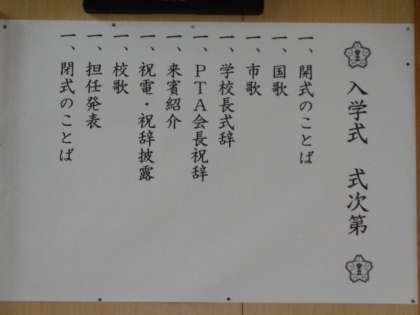 入学式 式次第
一、開式のことば
一、国歌
一、市歌
一、学校長式辞
一、PTA会長祝辞
一、来賓紹介
一、祝電・祝辞披露
一、校歌
一、担任発表
一、閉式のことば